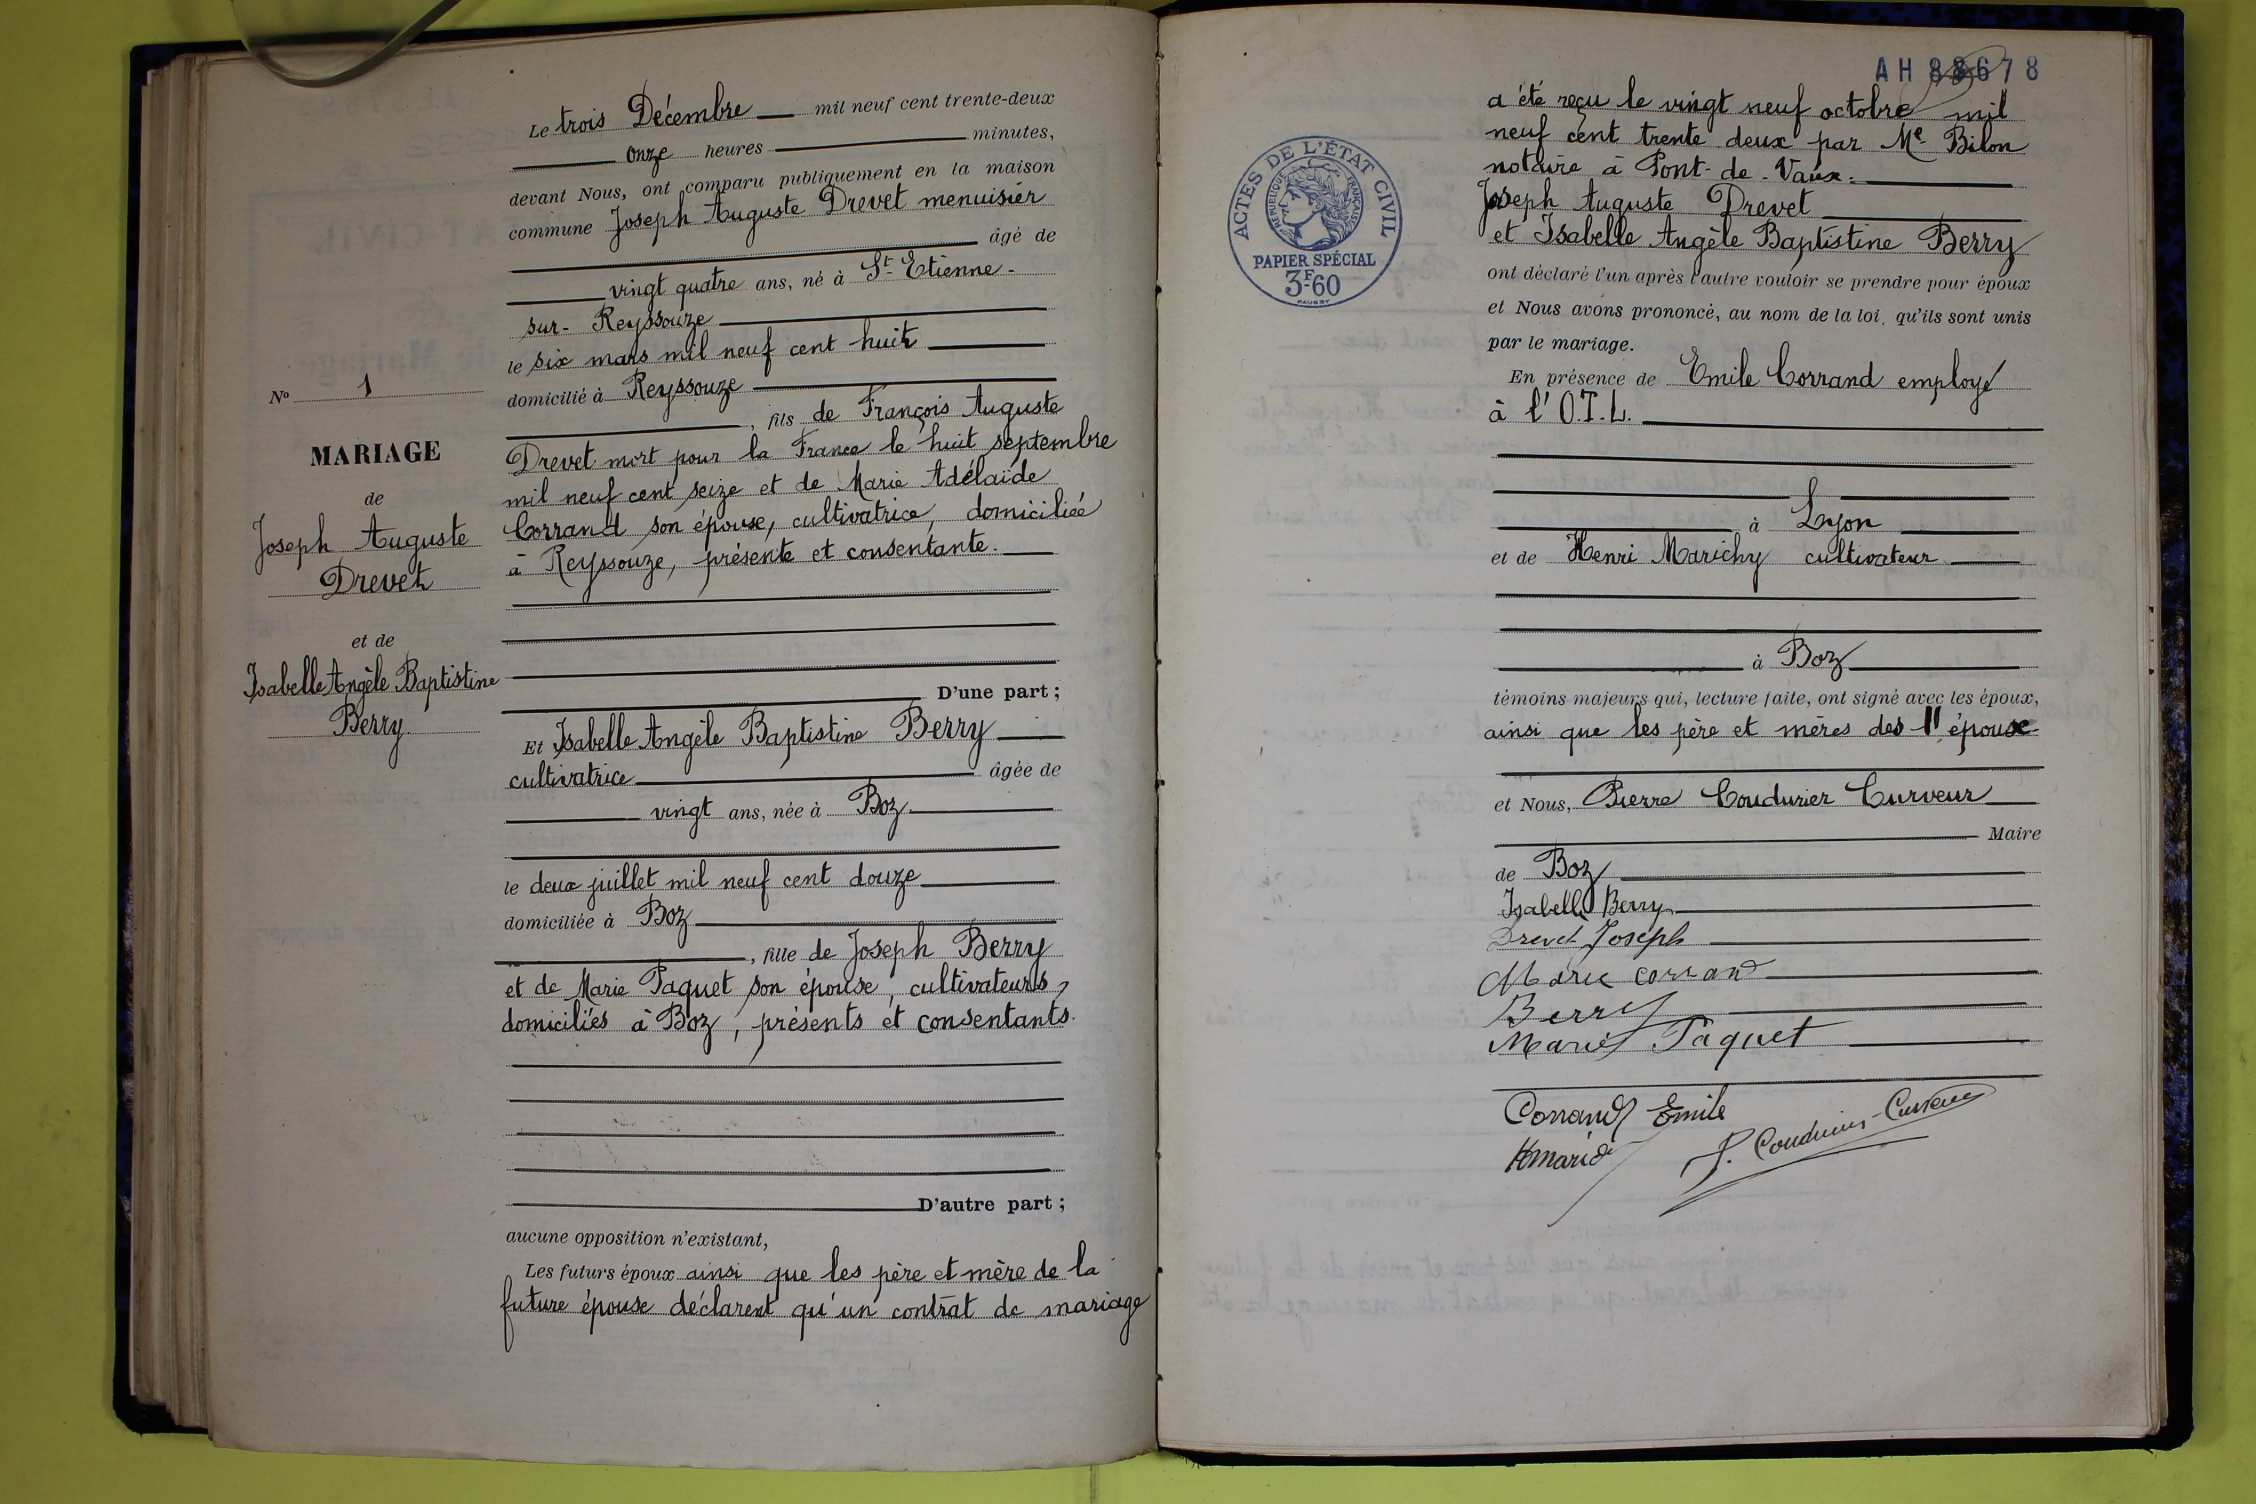 N° 1
MARIAGE
de
Joseph Auguste
Drevet
et de
Isabelle Angèle Baptistine
Berry
Le trois Décembre mil neuf cent trente-deux
onze heures minutes,
devant Nous, ont comparu publiquement en la maison
commune Joseph Auguste Drevet menuisier
âgé de
vingt quatre ans, né à St Etienne-
sur-Reyssouze
le six mars mil neuf cent huit
domicilié à Reyssouze
, fils de François Auguste
Drevet mort pour la France le huit septembre
mil neuf cent seize et de Marie Adélaïde
Corrand son épouse, cultivatrice, domiciliée
à Reyssouze, présente et consentante.
D'une part ;
Et Isabelle Angèle Baptistine Berry
cultivatrice âgée de
vingt ans, née à Boz
le deux juillet mil neuf cent douze
domiciliée à Boz
, fille de Joseph Berry
et de Marie Paquet son épouse, cultivateurs,
domiciliés à Boz, présents et consentants.
D'autre part ;
aucune opposition n'existant,
Les futurs époux ainsi que les père et mère de la
future épouse déclarent qu'un contrat de mariage
AH 88678
ACTES DE L'ÉTAT CIVIL
RÉPUBLIQUE FRANÇAISE
PAPIER SPÉCIAL
3F60
a été reçu le vingt neuf octobre mil
neuf cent trente deux par Me Bilon
notaire à Pont-de-Vaux.
Joseph Auguste Drevet
et Isabelle Angèle Baptistine Berry
ont déclaré l'un après l'autre vouloir se prendre pour époux
et Nous avons prononcé, au nom de la loi, qu'ils sont unis
par le mariage.
En présence de Emile Corrand employé
à l'O.T.L.
à Lyon
et de Henri Marichy cultivateur
à Boz
témoins majeurs qui, lecture faite, ont signé avec les époux,
ainsi que les père et mères des époux
et Nous, Pierre Coudurier Curveur
Maire
de Boz
Isabelle Berry
Drevet Joseph
Marie Corrand
Berry
Marie Paquet
Corrand Emile
P. Coudurier-Curveur